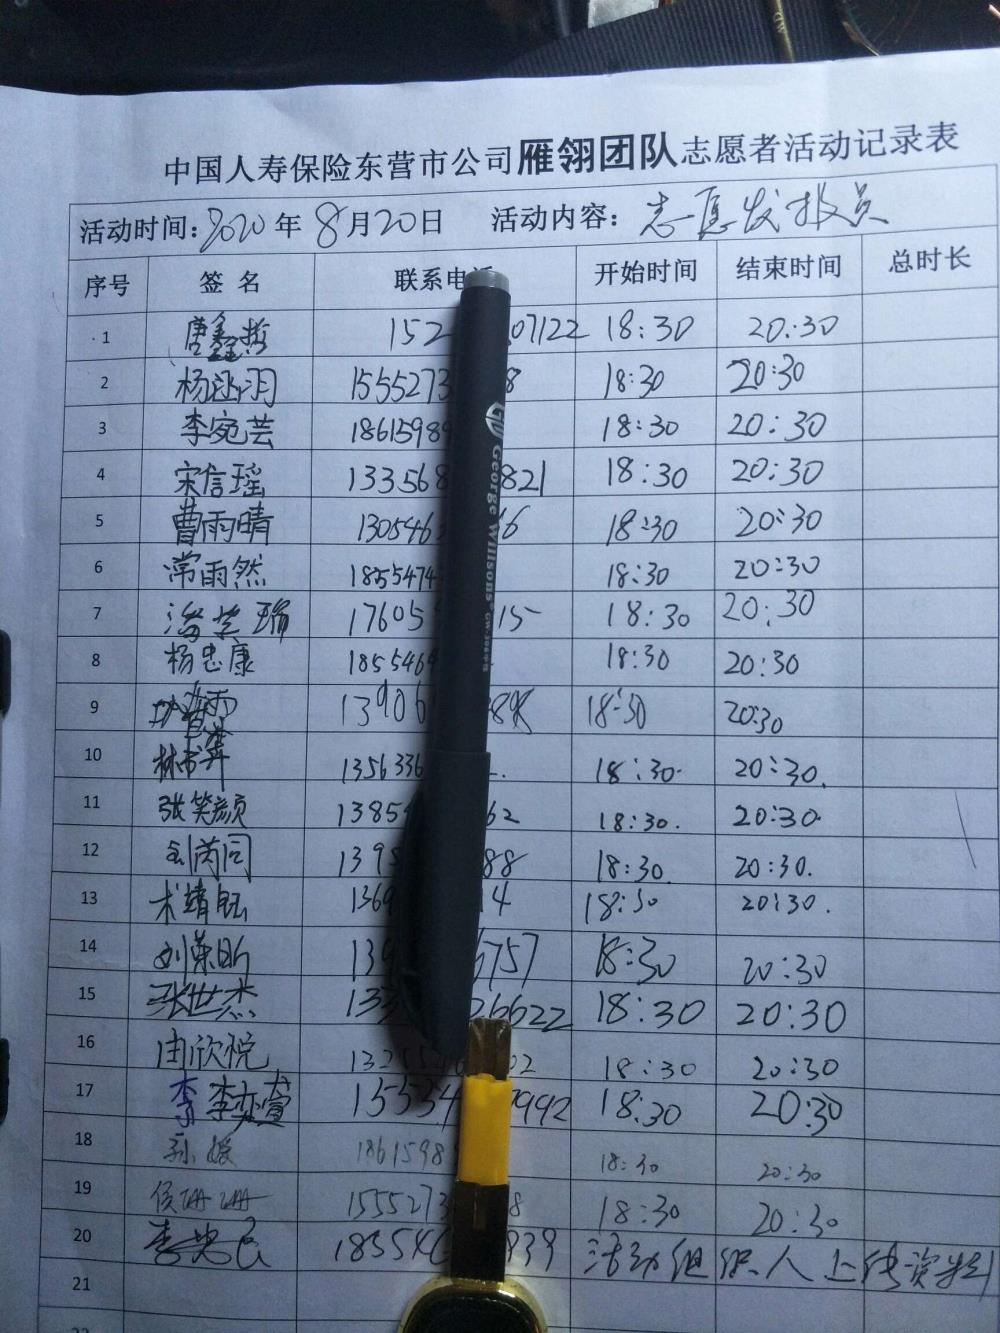 中国人寿保险东营市公司雁翎团队志愿者活动记录表
活动时间: 2020年 8月20日 活动内容: 志愿发报员
序号 签 名 联系电 开始时间 结束时间 总时长
1 唐鑫哲 152 07122 18:30 20:30
2 杨 羽 1555273 8 18:30 20:30
3 李宛芸 18615989 18:30 20:30
4 宋信瑶 133568 821 18:30 20:30
5 曹雨晴 1305463 6 18:30 20:30
6 常雨然 1855474 18:30 20:30
7 瑞 17605 15 18:30 20:30
8 杨忠康 1855464 18:30 20:30
9 13906 18:30 20:30
10 林 1356336 18:30. 20:30.
11 张笑颜 1385 62 18:30. 20:30.
12 刘芮同 139 88 18:30. 20:30.
13 术靖钰 1369 4 18:30 20:30.
14 刘 昕 139 6757 18:30 20:30
15 张世杰 133 26622 18:30 20:30
16 由欣悦 13255 02 18:30 20:30
17 李 李奕萱 15554 7992 18:30 20:30
18 孙媛 1861598 18:30 20:30
19 侯珊珊 1555273 8 18:30 20:30
20 李忠民 18554 939 活动组织人上传资料
21
22
GW George Willsons®